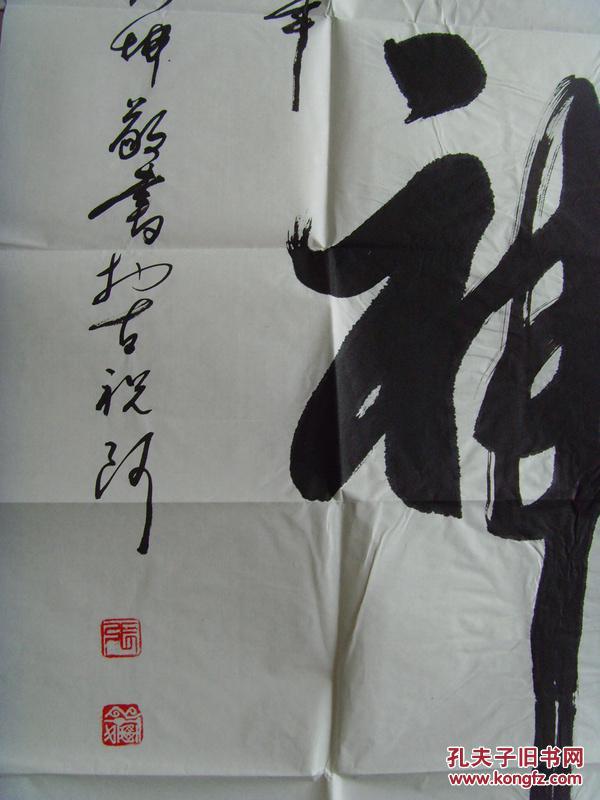 神
年
坤敬書於古祝阿
孔夫子旧书网
www.kongfz.com